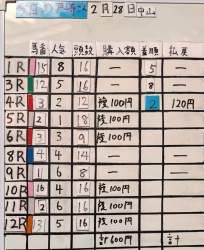 2月28日中山
馬番 人気 頭数 購入額 着順 払戻
1R 15 8 16 — 5
3R 12 5 12 — 8
4R 3 2 12 複100円 2 120円
5R 2 1 18 複100円
6R 3 3 9 複100円
8R 4 4 14 —
9R 11 6 8 — —
10R 16 4 16 複100円
11R 2 6 16 複100円
12R 13 5 16 複100円
計600円 計